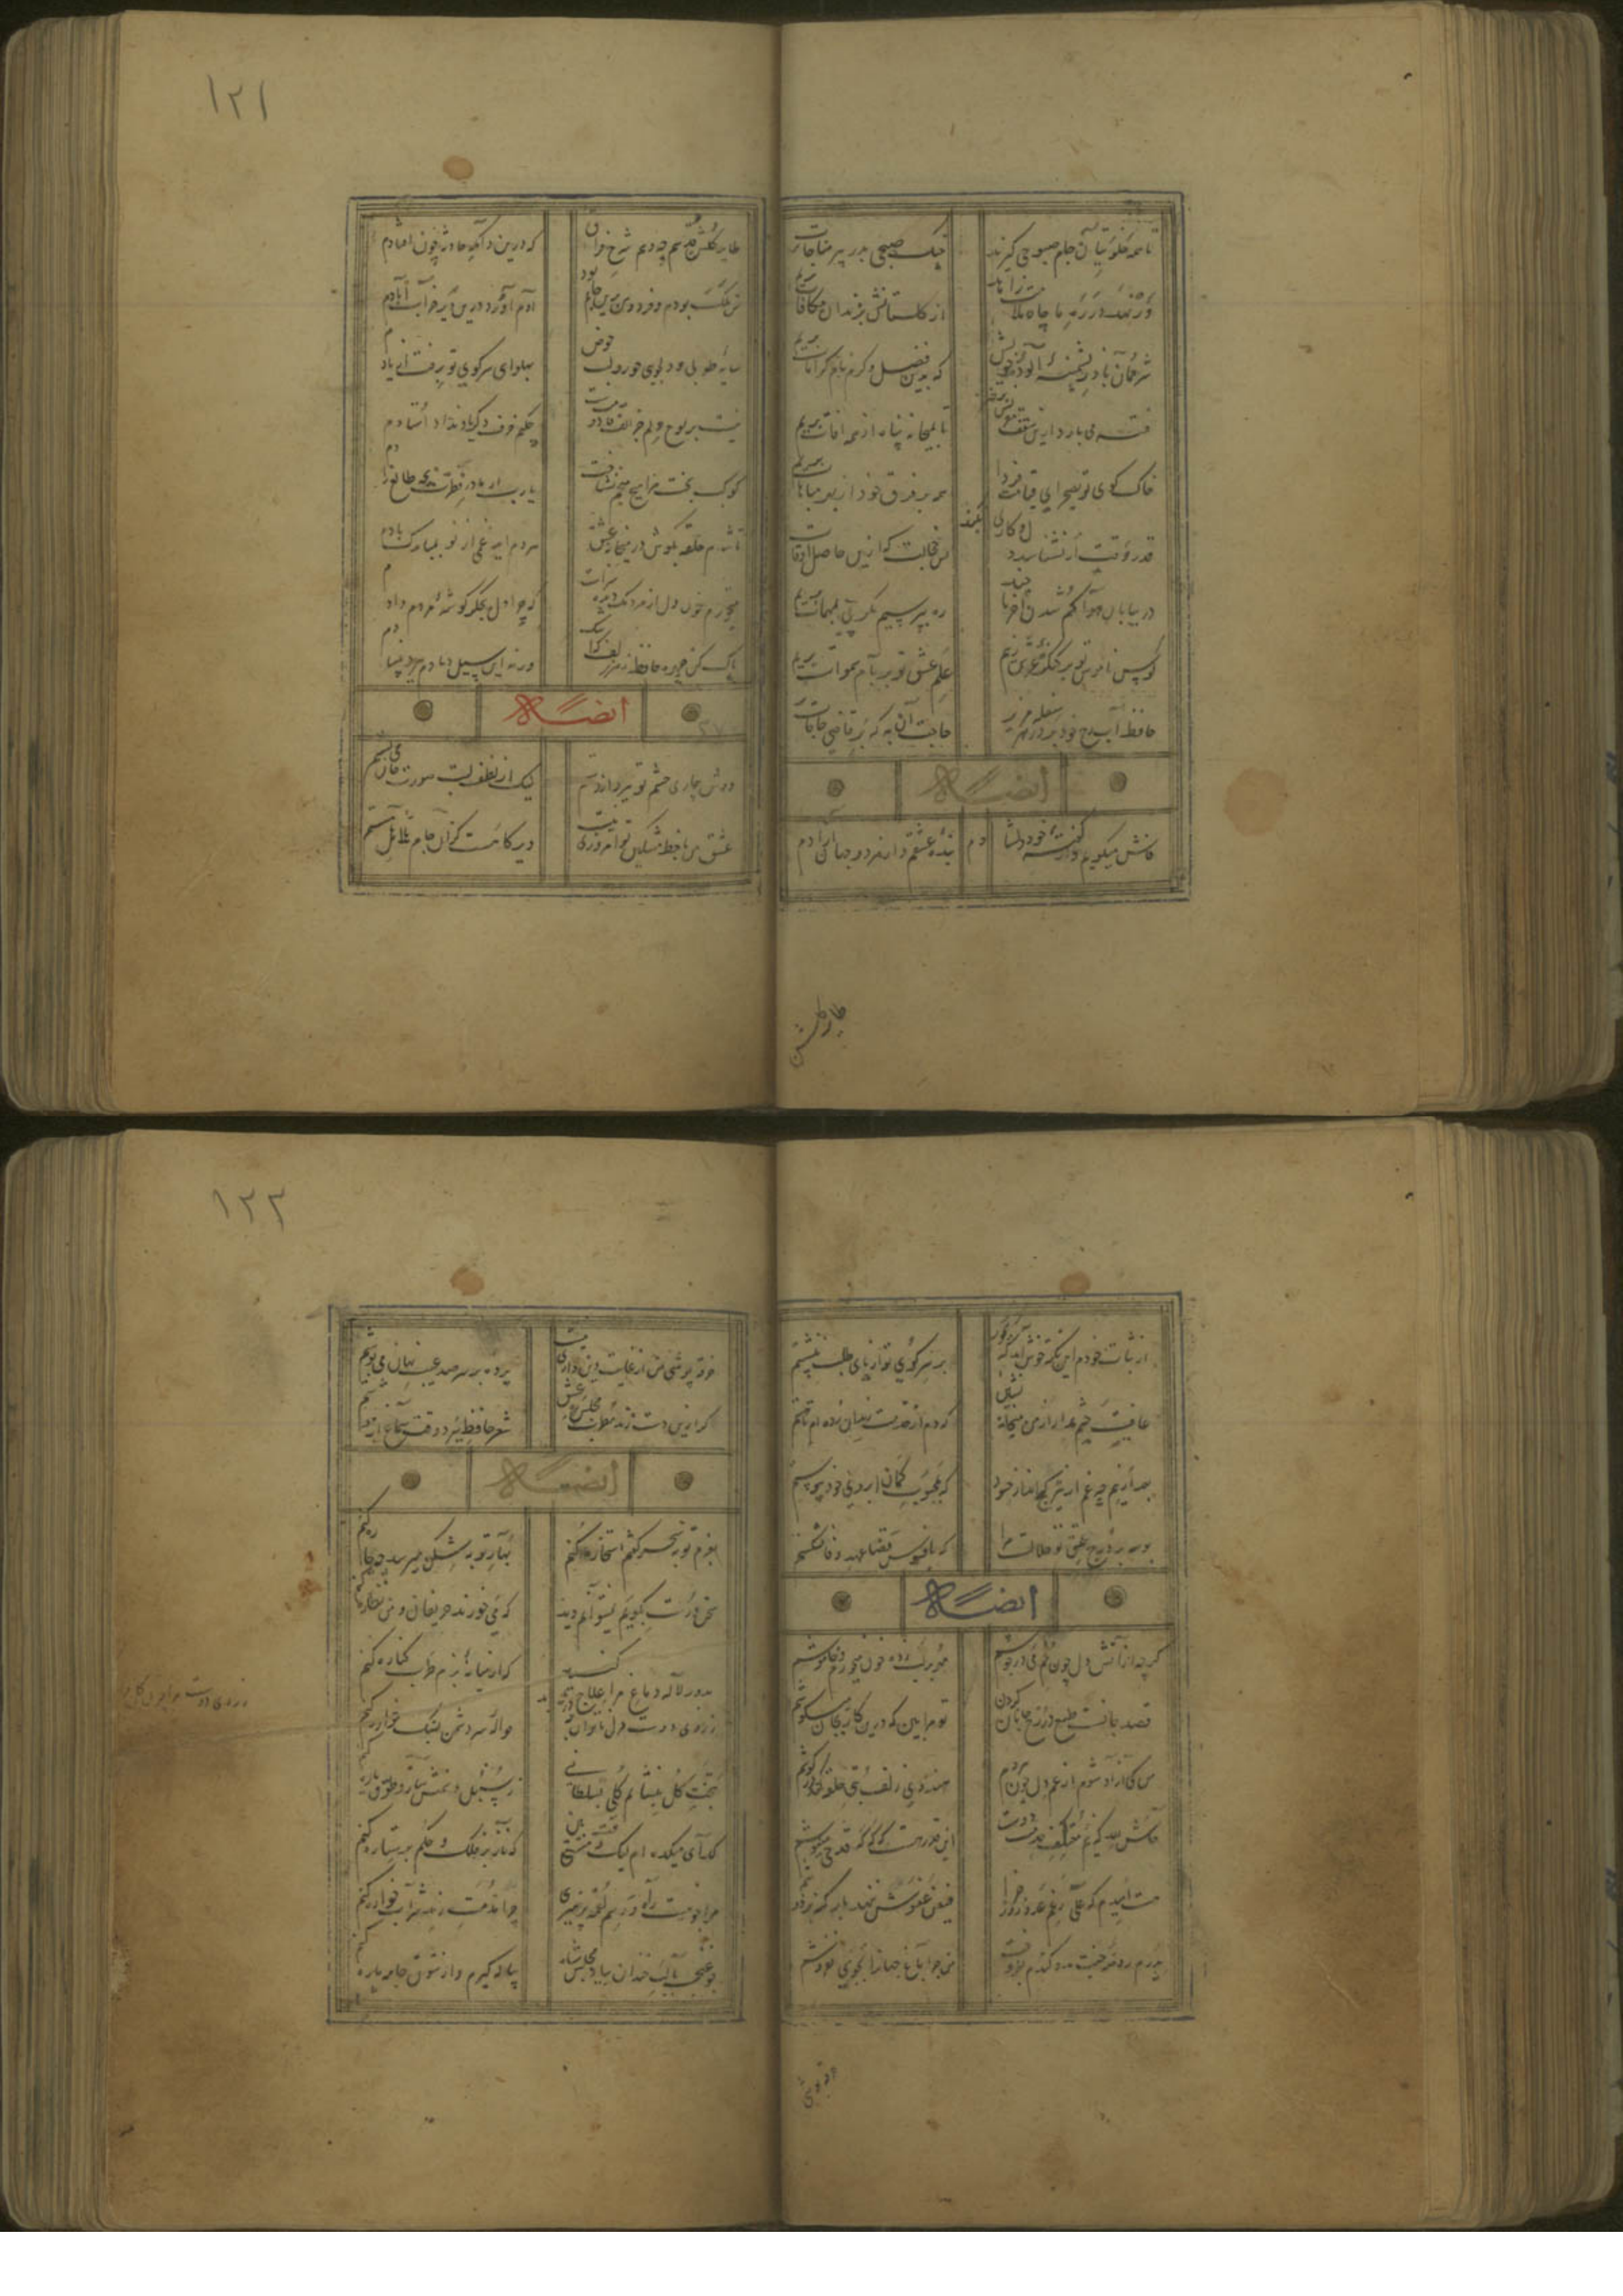 تا همه خلوتیان جام صبوحی گیرند
چنگ صبحی بدر پیر مناجات بریم
ور نهد در ره ما خار ملامت زاهد
از گلستانش بزندان مکافات بریم
شرممان باد ز پشمینه آلوده خویش
که بدین فضل و کرم نام کرامات بریم
فتنه می بارد ازین سقف مقرنس برخیز
تا بمیخانه پناه از همه آفات بریم
خاک کوی تو بصحرای قیامت فردا
همه بر فرق خود از بهر مباهات بریم
قدر وقت ار نشناسد دل و کاری نکند
بس خجالت که ازین حاصل اوقات
در بیابان هوا گم شدن آخر تا چند
ره بپرسیم مگر پی بمهمات بریم
کوس ناموس تو بر کنگره عرش زنیم
علم عشق تو بر بام سموات بریم
حافظ آب رخ خود بر در هر سفله مریز
حاجت آن به که بر قاضی حاجات
ایضاً له
فاش میگویم و از گفته خود دلشادم
بنده عشقم و از هر دو جهان آزادم
طایر گلشن
۱۲۱
طایر گلشن قدسم چه دهم شرح فراق
که درین دامگه حادثه چون افتادم
من ملک بودم و فردوس برین جایم بود
آدم آورد درین دیر خراب آبادم
سایه طوبی و دلجوی حور و لب حوض
بهوای سر کوی تو برفت از یادم
نیست بر لوح دلم جز الف قامت دوست
چکنم حرف دگر یاد نداد استادم
کوکب بخت مرا هیچ منجم نشناخت
یارب از مادر فطرت بچه طالع زادم
تا شدم حلقه بگوش در میخانه عشق
هر دم آید غمی از نو بمبارک بادم
میخورد خون دلم مردمک دیده سزاست
که چرا دل بجگر گوشه مردم دادم
پاک کن چهره حافظ بسر زلف ز اشک
ورنه این سیل دمادم ببرد بنیادم
ایضاً له
دوش بیماری چشم تو ببرد از دستم
لیک از لطف لبت صورت جان می بستم
عشق من با خط مشکین تو امروزی نیست
دیرگاهست کزان جام هلالی مستم
از ثبات خودم این نکته خوش آمد که بجور
بر سر کوی تو از پای طلب ننشستم
عافیت چشم مدار از من میخانه نشین
که دم از خدمت رندان زده ام تا هستم
بعد ازینم چه غم از تیر کج انداز حسود
که بمحبوب کمان ابروی خود پیوستم
بوسه بر درج عقیق تو حلالست مرا
که بافسوس و جفا عهد وفا نشکستم
ایضاً له
گرچه از آتش دل چون خم می در جوشم
مهر بر لب زده خون میخورم و خاموشم
قصد جانست طمع در لب جانان کردن
تو مرا بین که درین کار بجان میکوشم
من کی آزاد شوم از غم دل چون هر دم
هندوی زلف بتی حلقه کند در گوشم
حاش لله که نیم معتقد طاعت خویش
این قدر هست که گه گه قدحی مینوشم
هست امیدم که علی رغم عدو روز جزا
فیض عفوش ننهد بار گنه بر دوشم
پدرم روضه جنت بدو گندم بفروخت
من چرا باغ جهان را بجوی نفروشم
خرقه پوشی
۱۲۲
خرقه پوشی من از غایت دین داری نیست
پرده بر سر صد عیب نهان می پوشم
گر ازین دست زند مطرب مجلس ره عشق
شعر حافظ ببرد وقت سماع از هوشم
ایضاً له
بعزم توبه سحر گفتم استخاره کنم
بهار توبه شکن میرسد چه چاره کنم
سخن درست بگویم نمیتوانم دید
که می خورند حریفان و من نظاره کنم
بدور لاله دماغ مرا علاج کنید
گر از میانه بزم طرب کناره کنم
ز روی دوست
حواله سر دشمن بسنگ خاره کنم
بتخت گل بنشانم بتی چو سلطانی
ز سنبل و سمنش ساز طوق و یاره کنم
گدای میکده ام لیک وقت مستی بین
که ناز بر فلک و حکم بر ستاره کنم
مرا که نیست ره و رسم لقمه پرهیزی
چرا مذمت رند شرابخواره کنم
چو غنچه با لب خندان بیاد مجلس شاه
پیاله گیرم و از شوق جامه پاره کنم